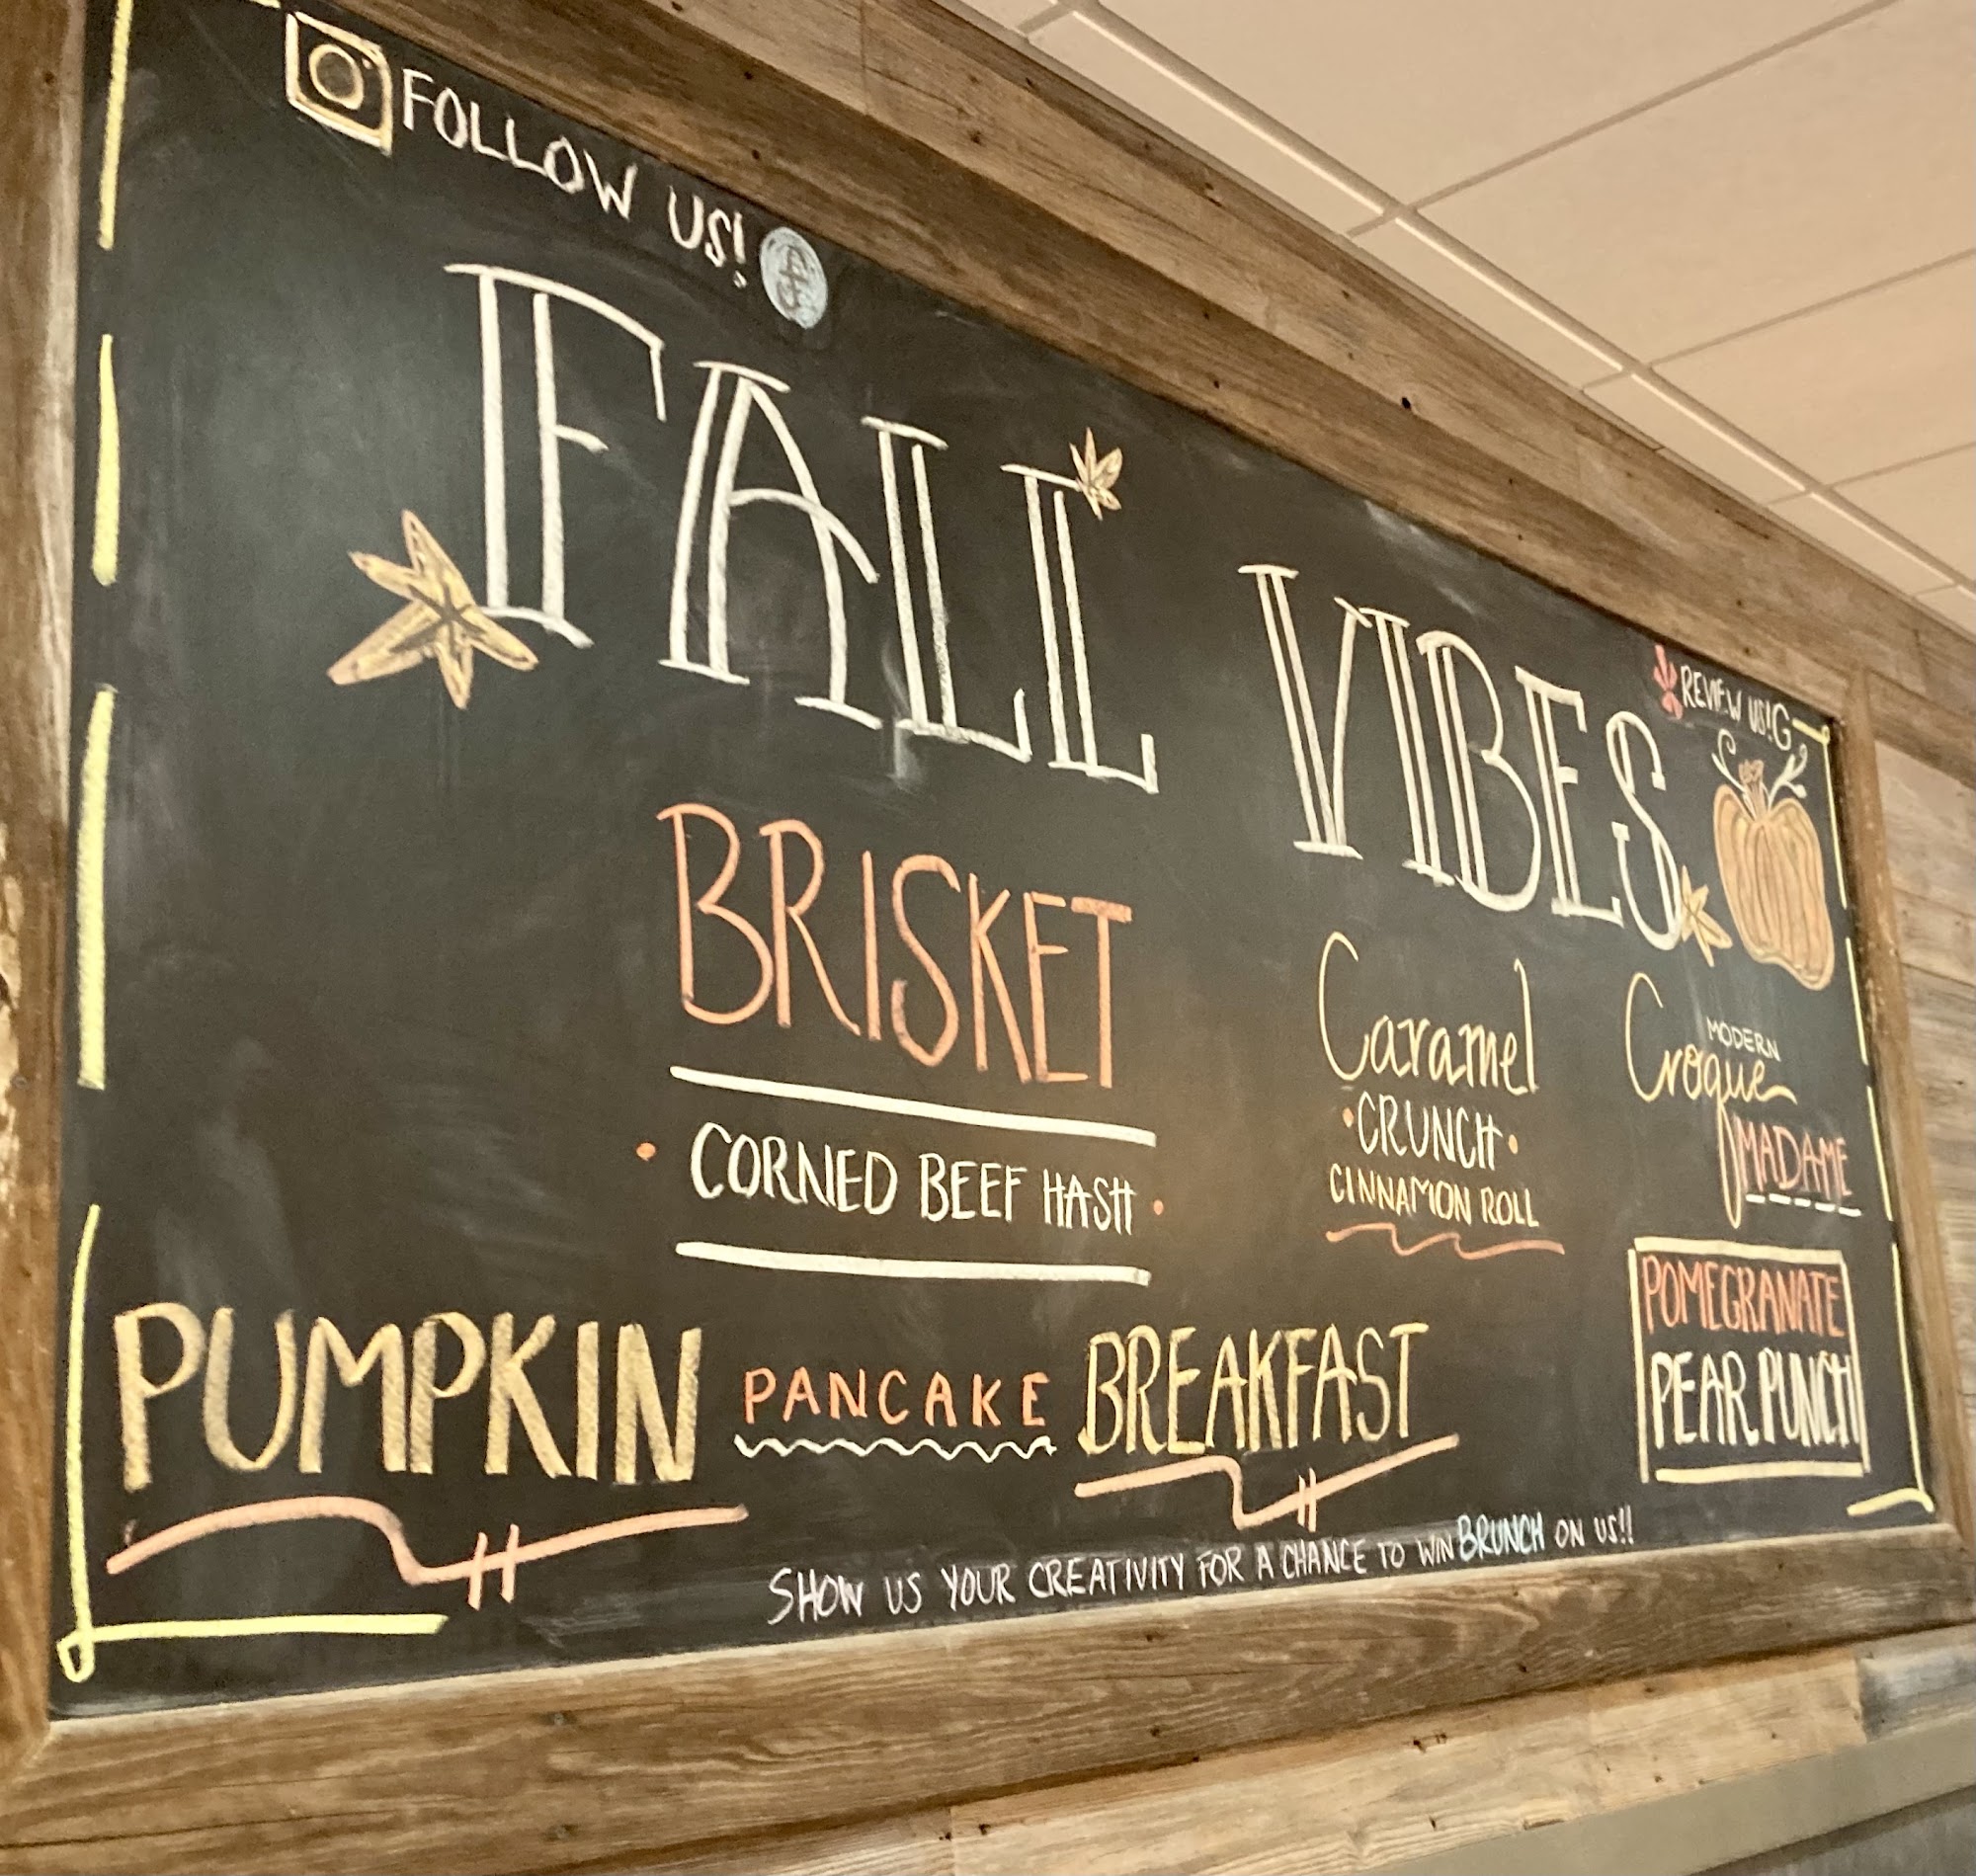 FOLLOW US!
FALL VIBES
REVIEW US! G
BRISKET
CORNED BEEF HASH
Caramel
CRUNCH
CINNAMON ROLL
MODERN
Croque
MADAME
POMEGRANATE
PEAR PUNCH
PUMPKIN PANCAKE BREAKFAST
SHOW US YOUR CREATIVITY FOR A CHANCE TO WIN BRUNCH ON US!!